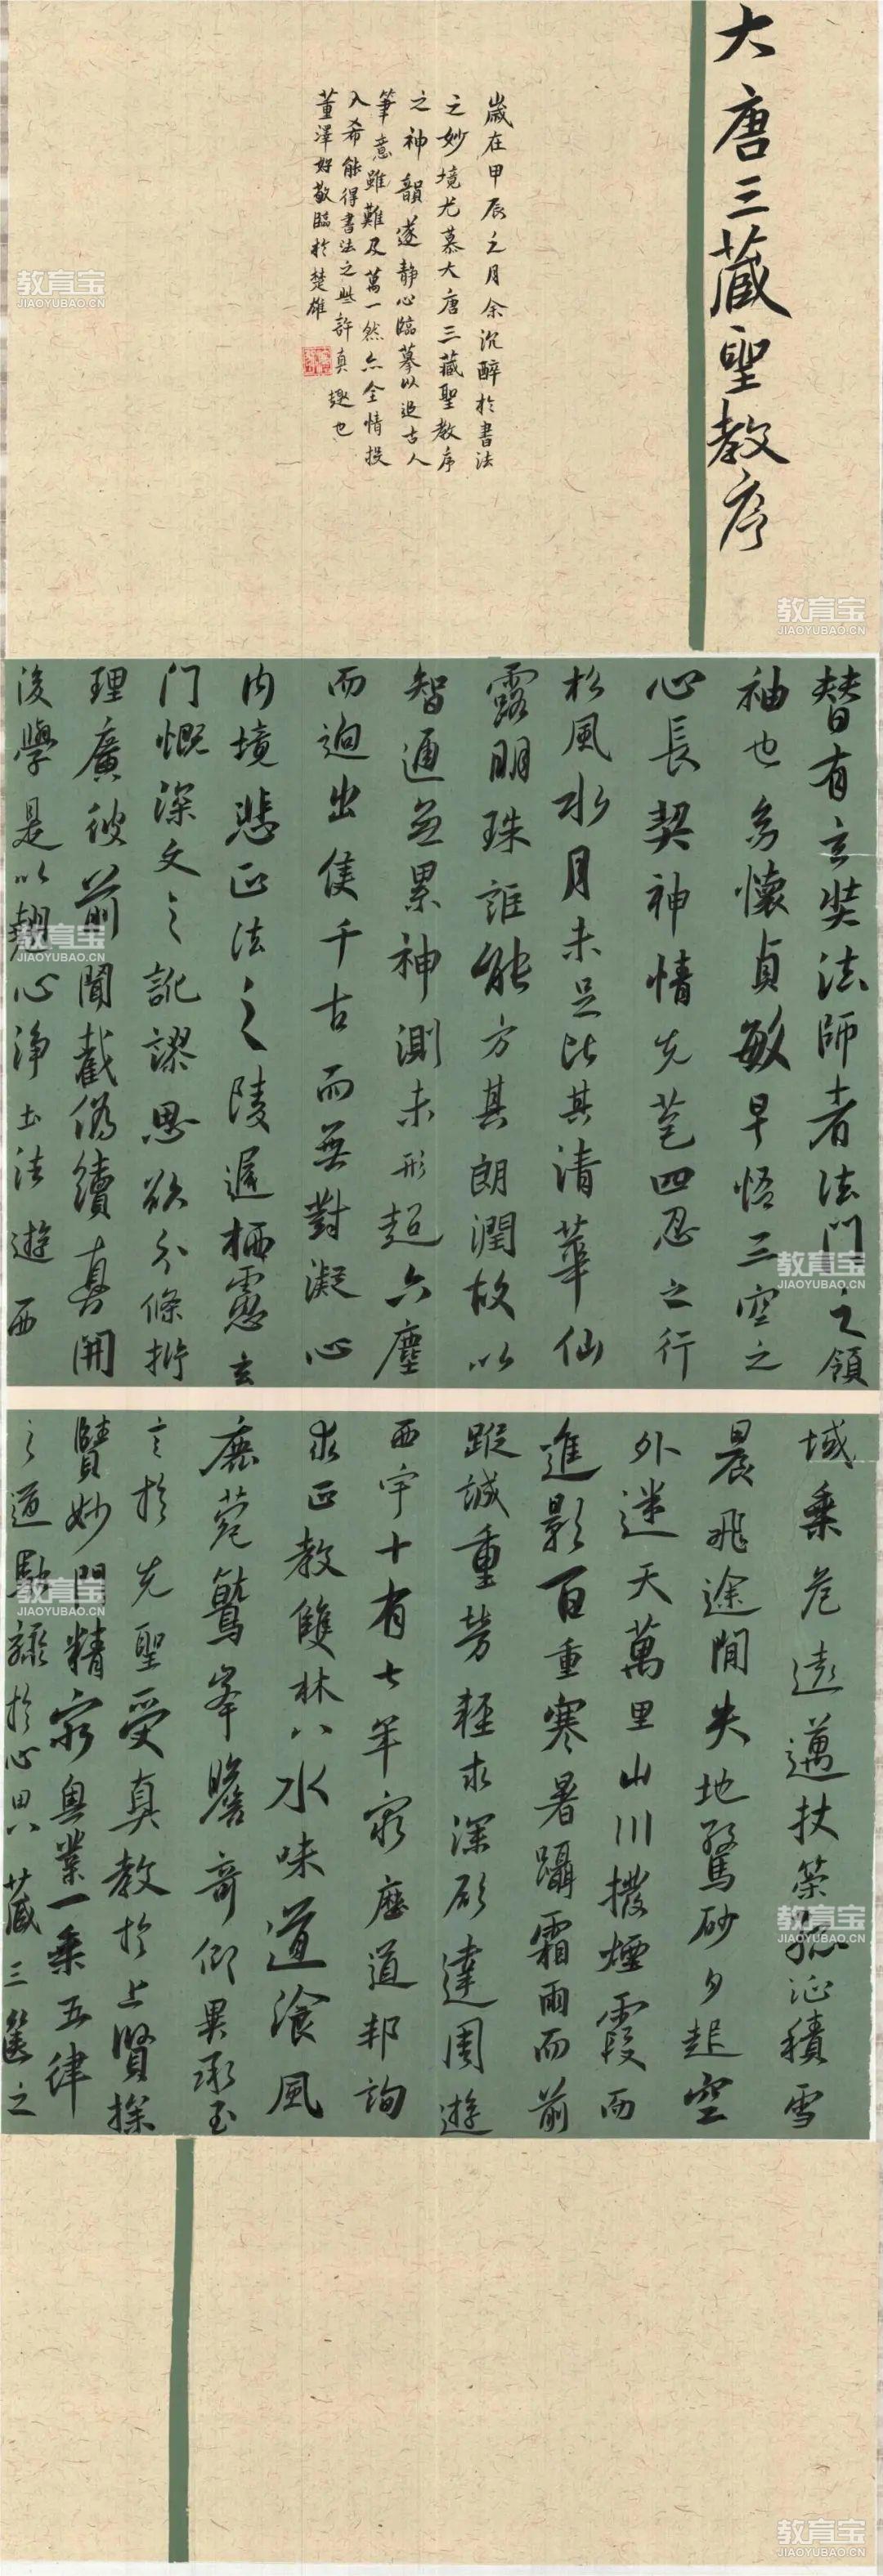 大唐三藏聖教序
歲在甲辰之月余沉醉於書法
之妙境尤慕大唐三藏聖教序
之神韻遂静心臨摹以追古人
筆意雖難及萬一然亦全情投
入希能得書法之些許真趣也
董澤好敬臨於楚雄
替有玄奘法師者法門之領
袖也幼懷貞敏早悟三空之
心長契神情先苞四忍之行
松風水月未足比其清華仙
露明珠詎能方其朗潤故以
智通無累神測未形超六塵
而迥出隻千古而無對凝心
内境悲正法之陵遲栖慮玄
門慨深文之訛謬思欲分條析
理廣彼前聞截偽續真開
後學是以翹心淨土法遊西
域乘危遠邁杖策孤征積雪
晨飛途間失地驚砂夕起空
外迷天萬里山川撥煙霞而
進影百重寒暑躡霜雨而前
蹤誠重勞輕求深願達周遊
西宇十有七年窮歷道邦詢
求正教雙林八水味道湌風
鹿菀鷲峯瞻奇仰異承至
言於先聖受真教於上賢探
賾妙門精窮奧業一乘五律
之道馳驟於心田八藏三篋之
教育宝
JIAOYUBAO.CN
教育宝
JIAOYUBAO.CN
教育宝
JIAOYUBAO.CN
教育宝
JIAOYUBAO.CN
教育宝
JIAOYUBAO.CN
教育宝
JIAOYUBAO.CN
教育宝
JIAOYUBAO.CN